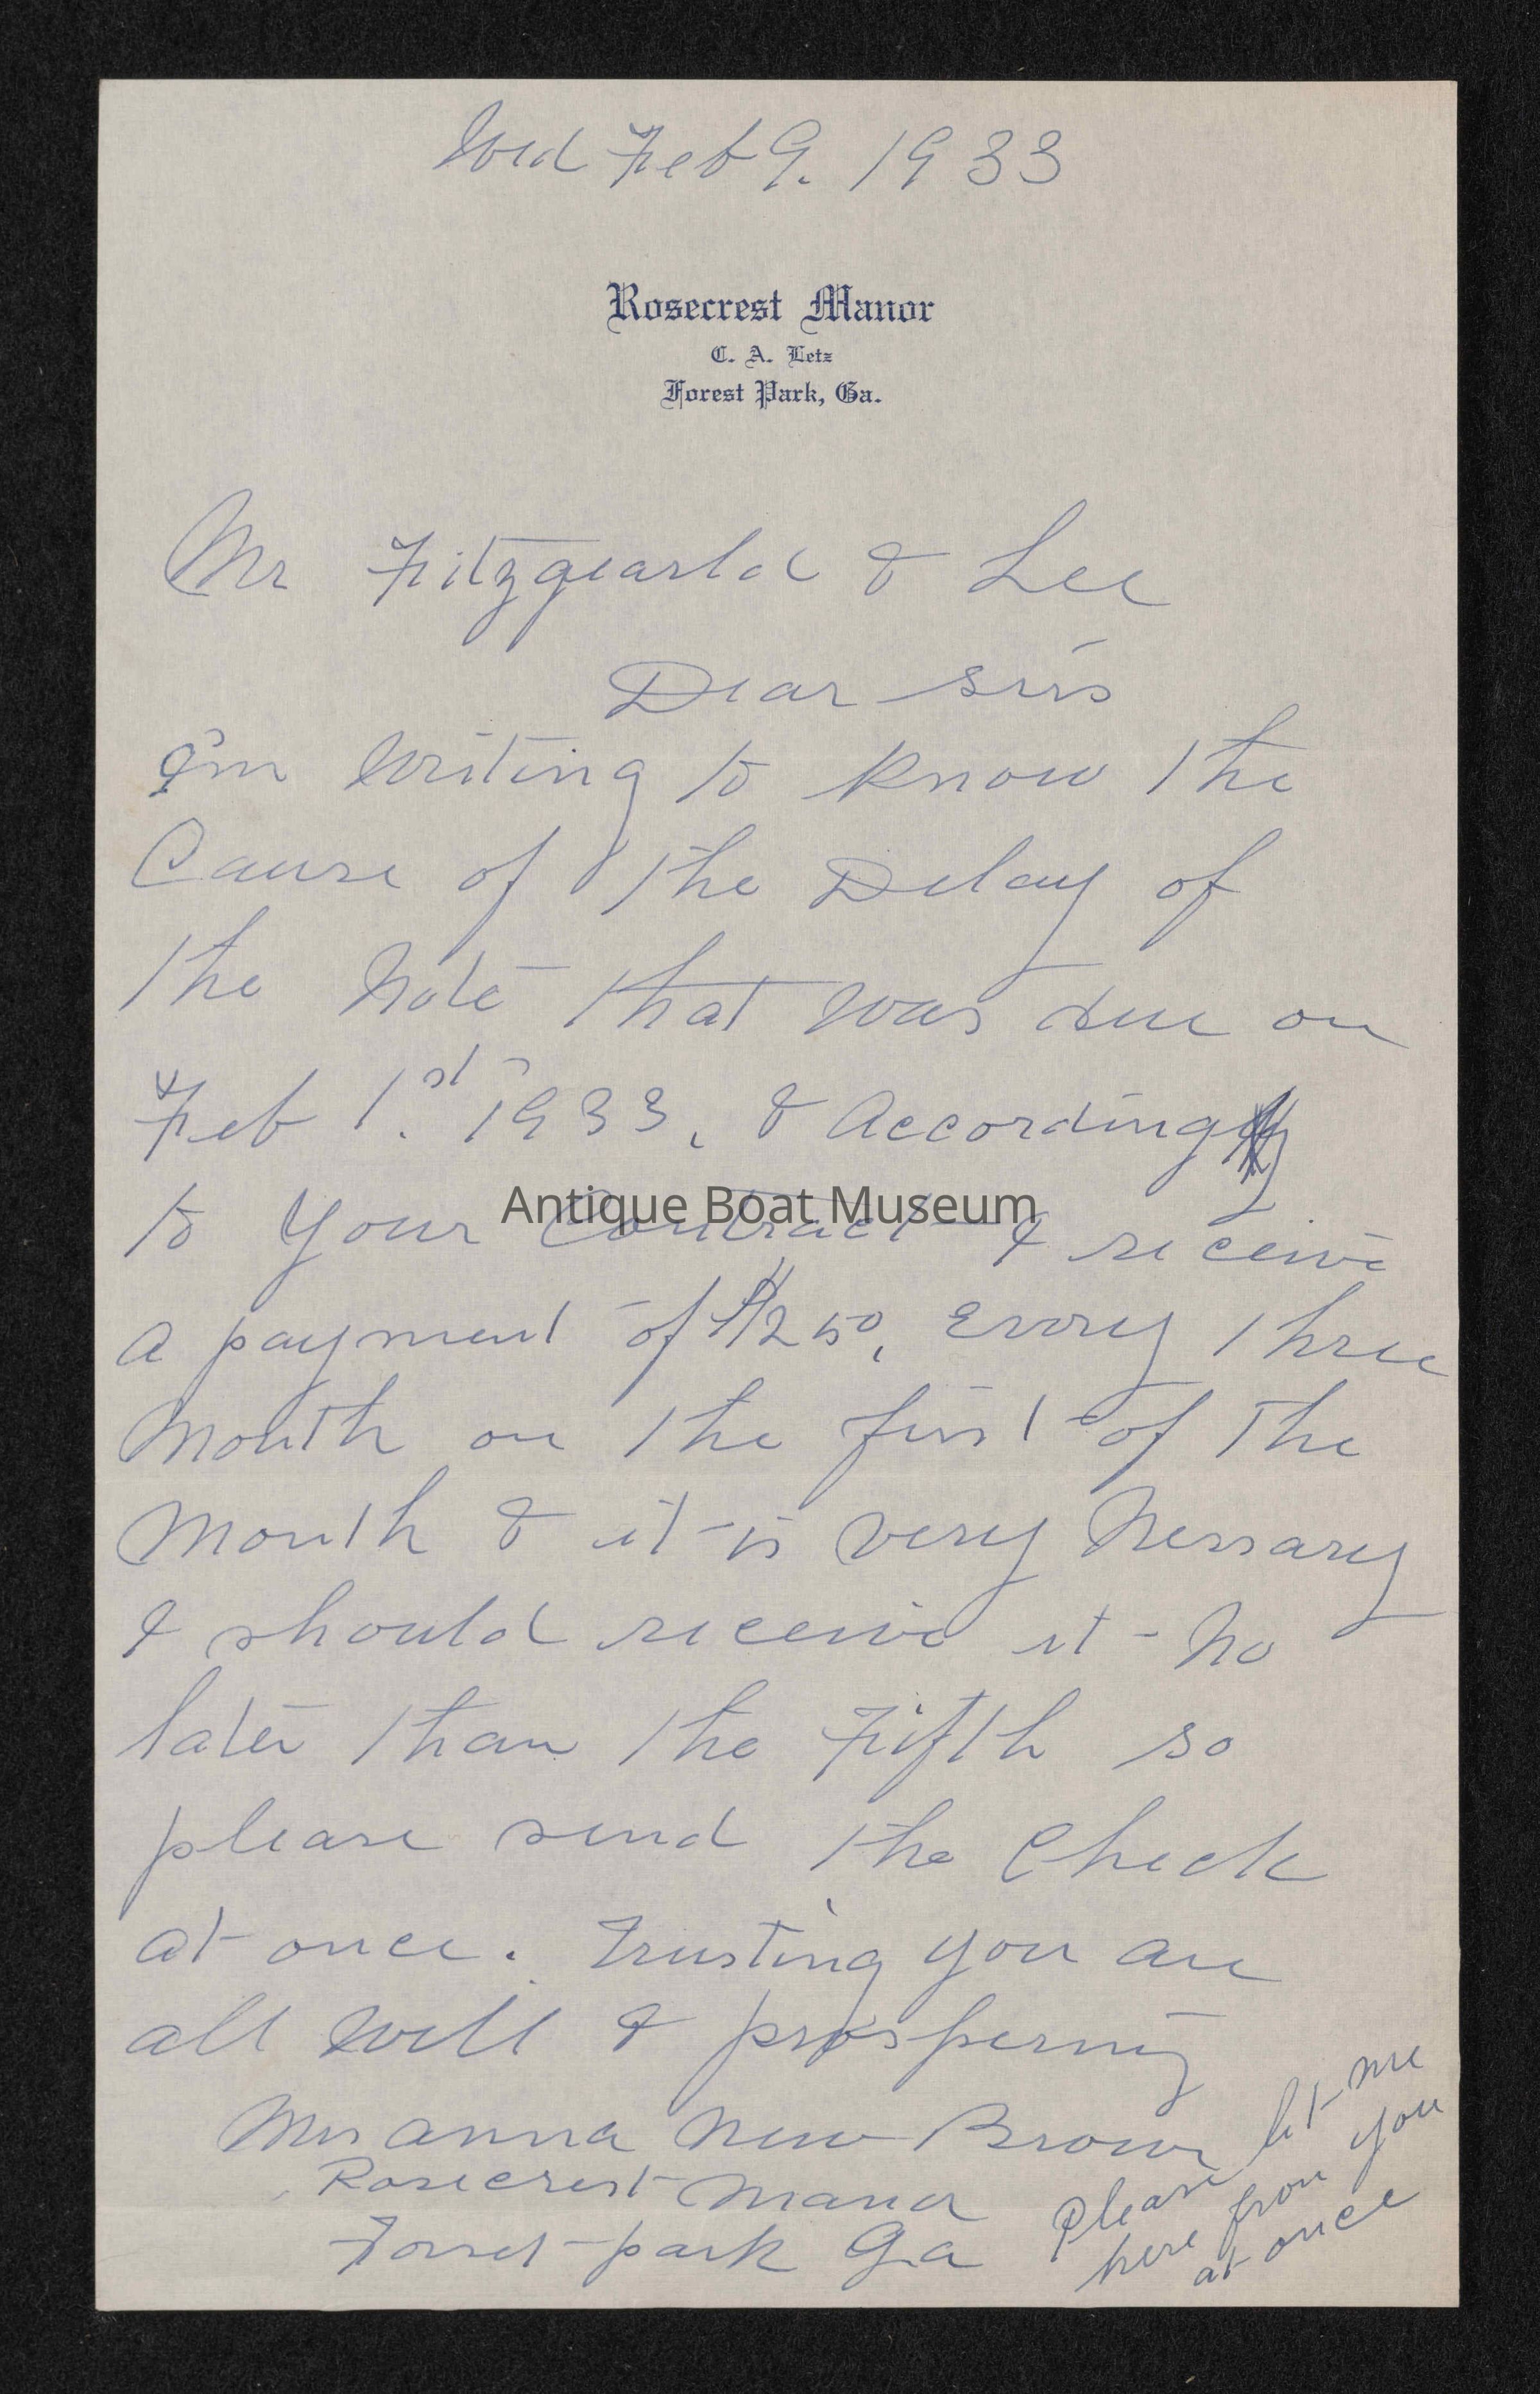 Wed Feb 9. 1933
Rosecrest Manor
C. A. Letz
Forest Park, Ga.
Mr Fitzgearld & Lee
Dear sirs
I'm writing to know the
Cause of the Delay of
the Note that was due on
Feb 1.st 1933, & According
to your Contract I receive
a payment of $250, Every three
Month on the first of the
Month & it is very Nessary
I should receive it - No
later than the Fifth so
please send the Check
at once. Trusting you are
all well & prospering
Mrs Anna New Brown
Rosecrest Manor
Forest park Ga
Please let me
here from you
at once
Antique Boat Museum